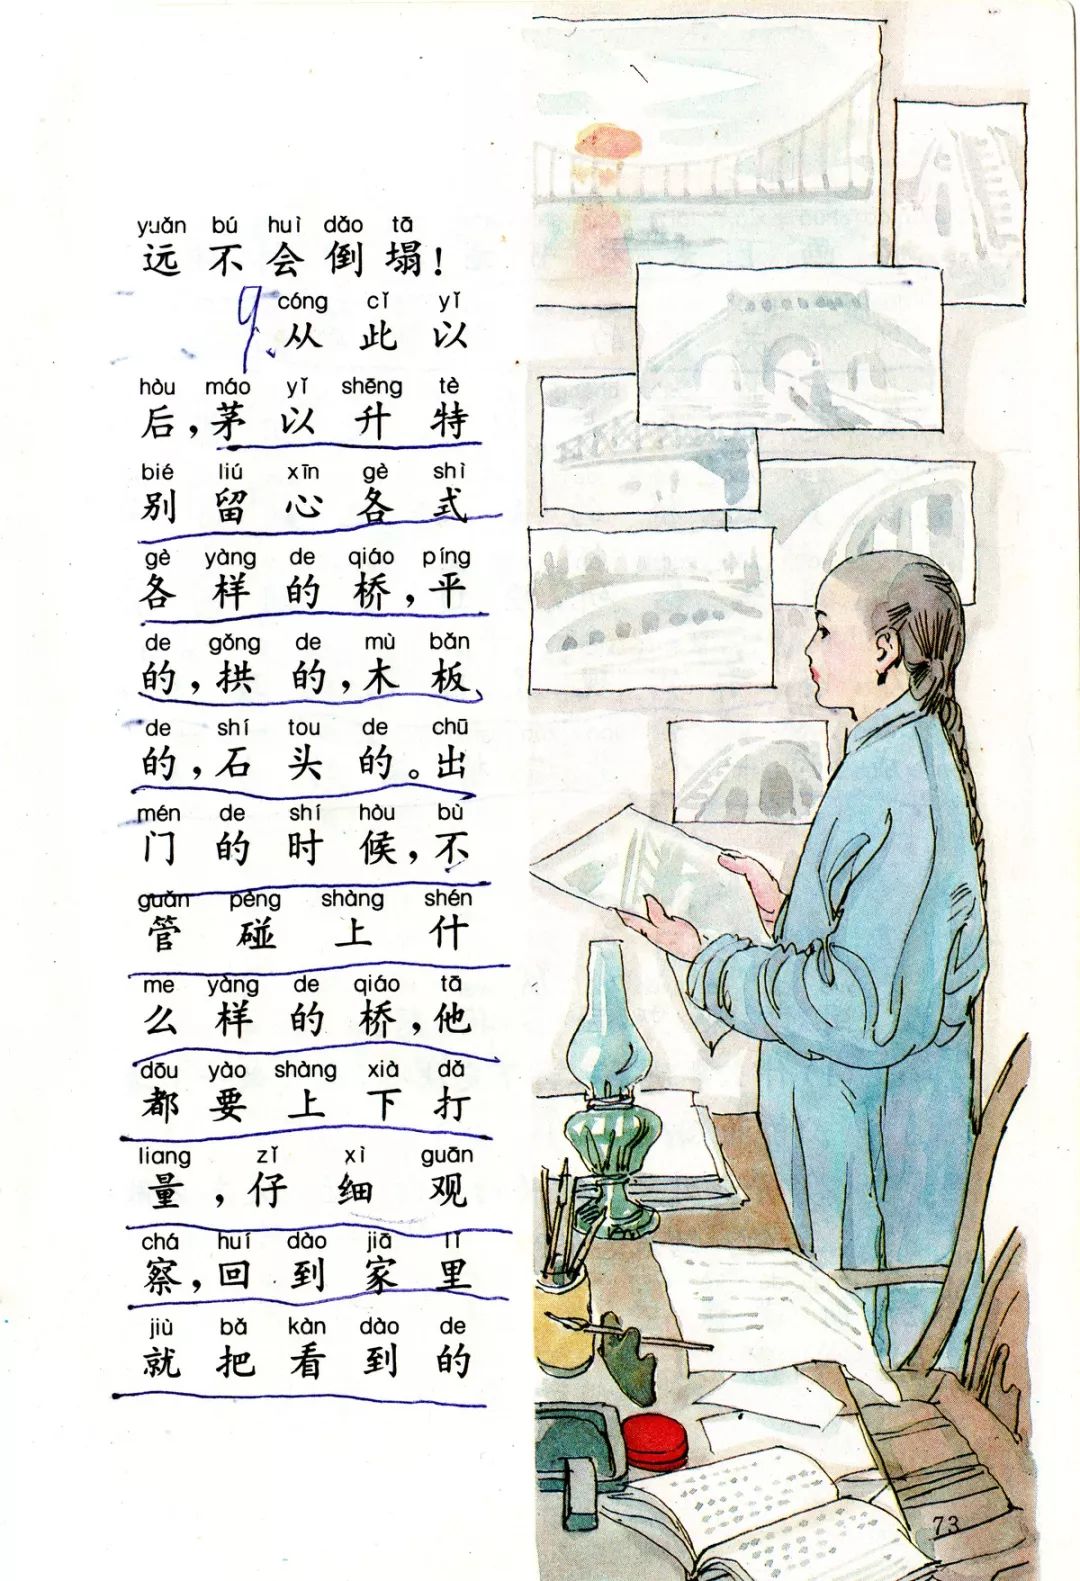 yuǎn bú huì dǎo tā
远不会倒塌！
9.
cóng cǐ yǐ
从此以
hòu máo yǐ shēng tè
后，茅以升特
bié liú xīn gè shì
别留心各式
gè yàng de qiáo píng
各样的桥，平
de gǒng de mù bǎn
的，拱的，木板
de shí tou de chū
的，石头的。出
mén de shí hòu bù
门的时候，不
guǎn pèng shàng shén
管碰上什
me yàng de qiáo tā
么样的桥，他
dōu yào shàng xià dǎ
都要上下打
liang zǐ xì guān
量，仔细观
chá huí dào jiā lǐ
察，回到家里
jiù bǎ kàn dào de
就把看到的
73